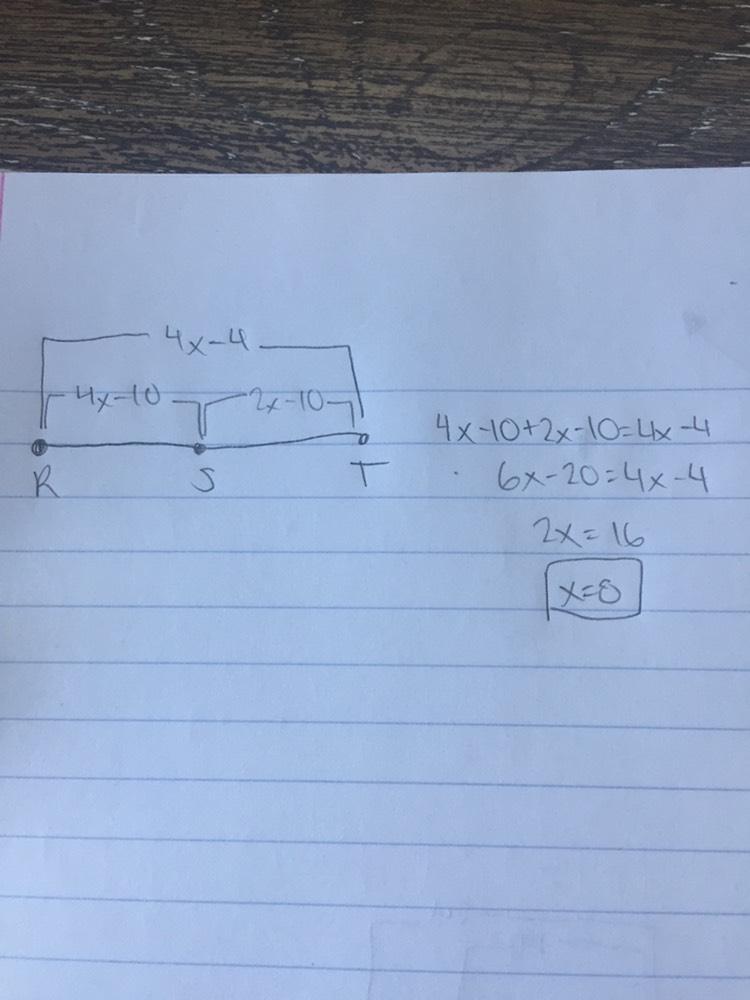 4x-4
4x-10 2x-10
R S T
4x-10+2x-10=4x-4
6x-20=4x-4
2x=16
x=8